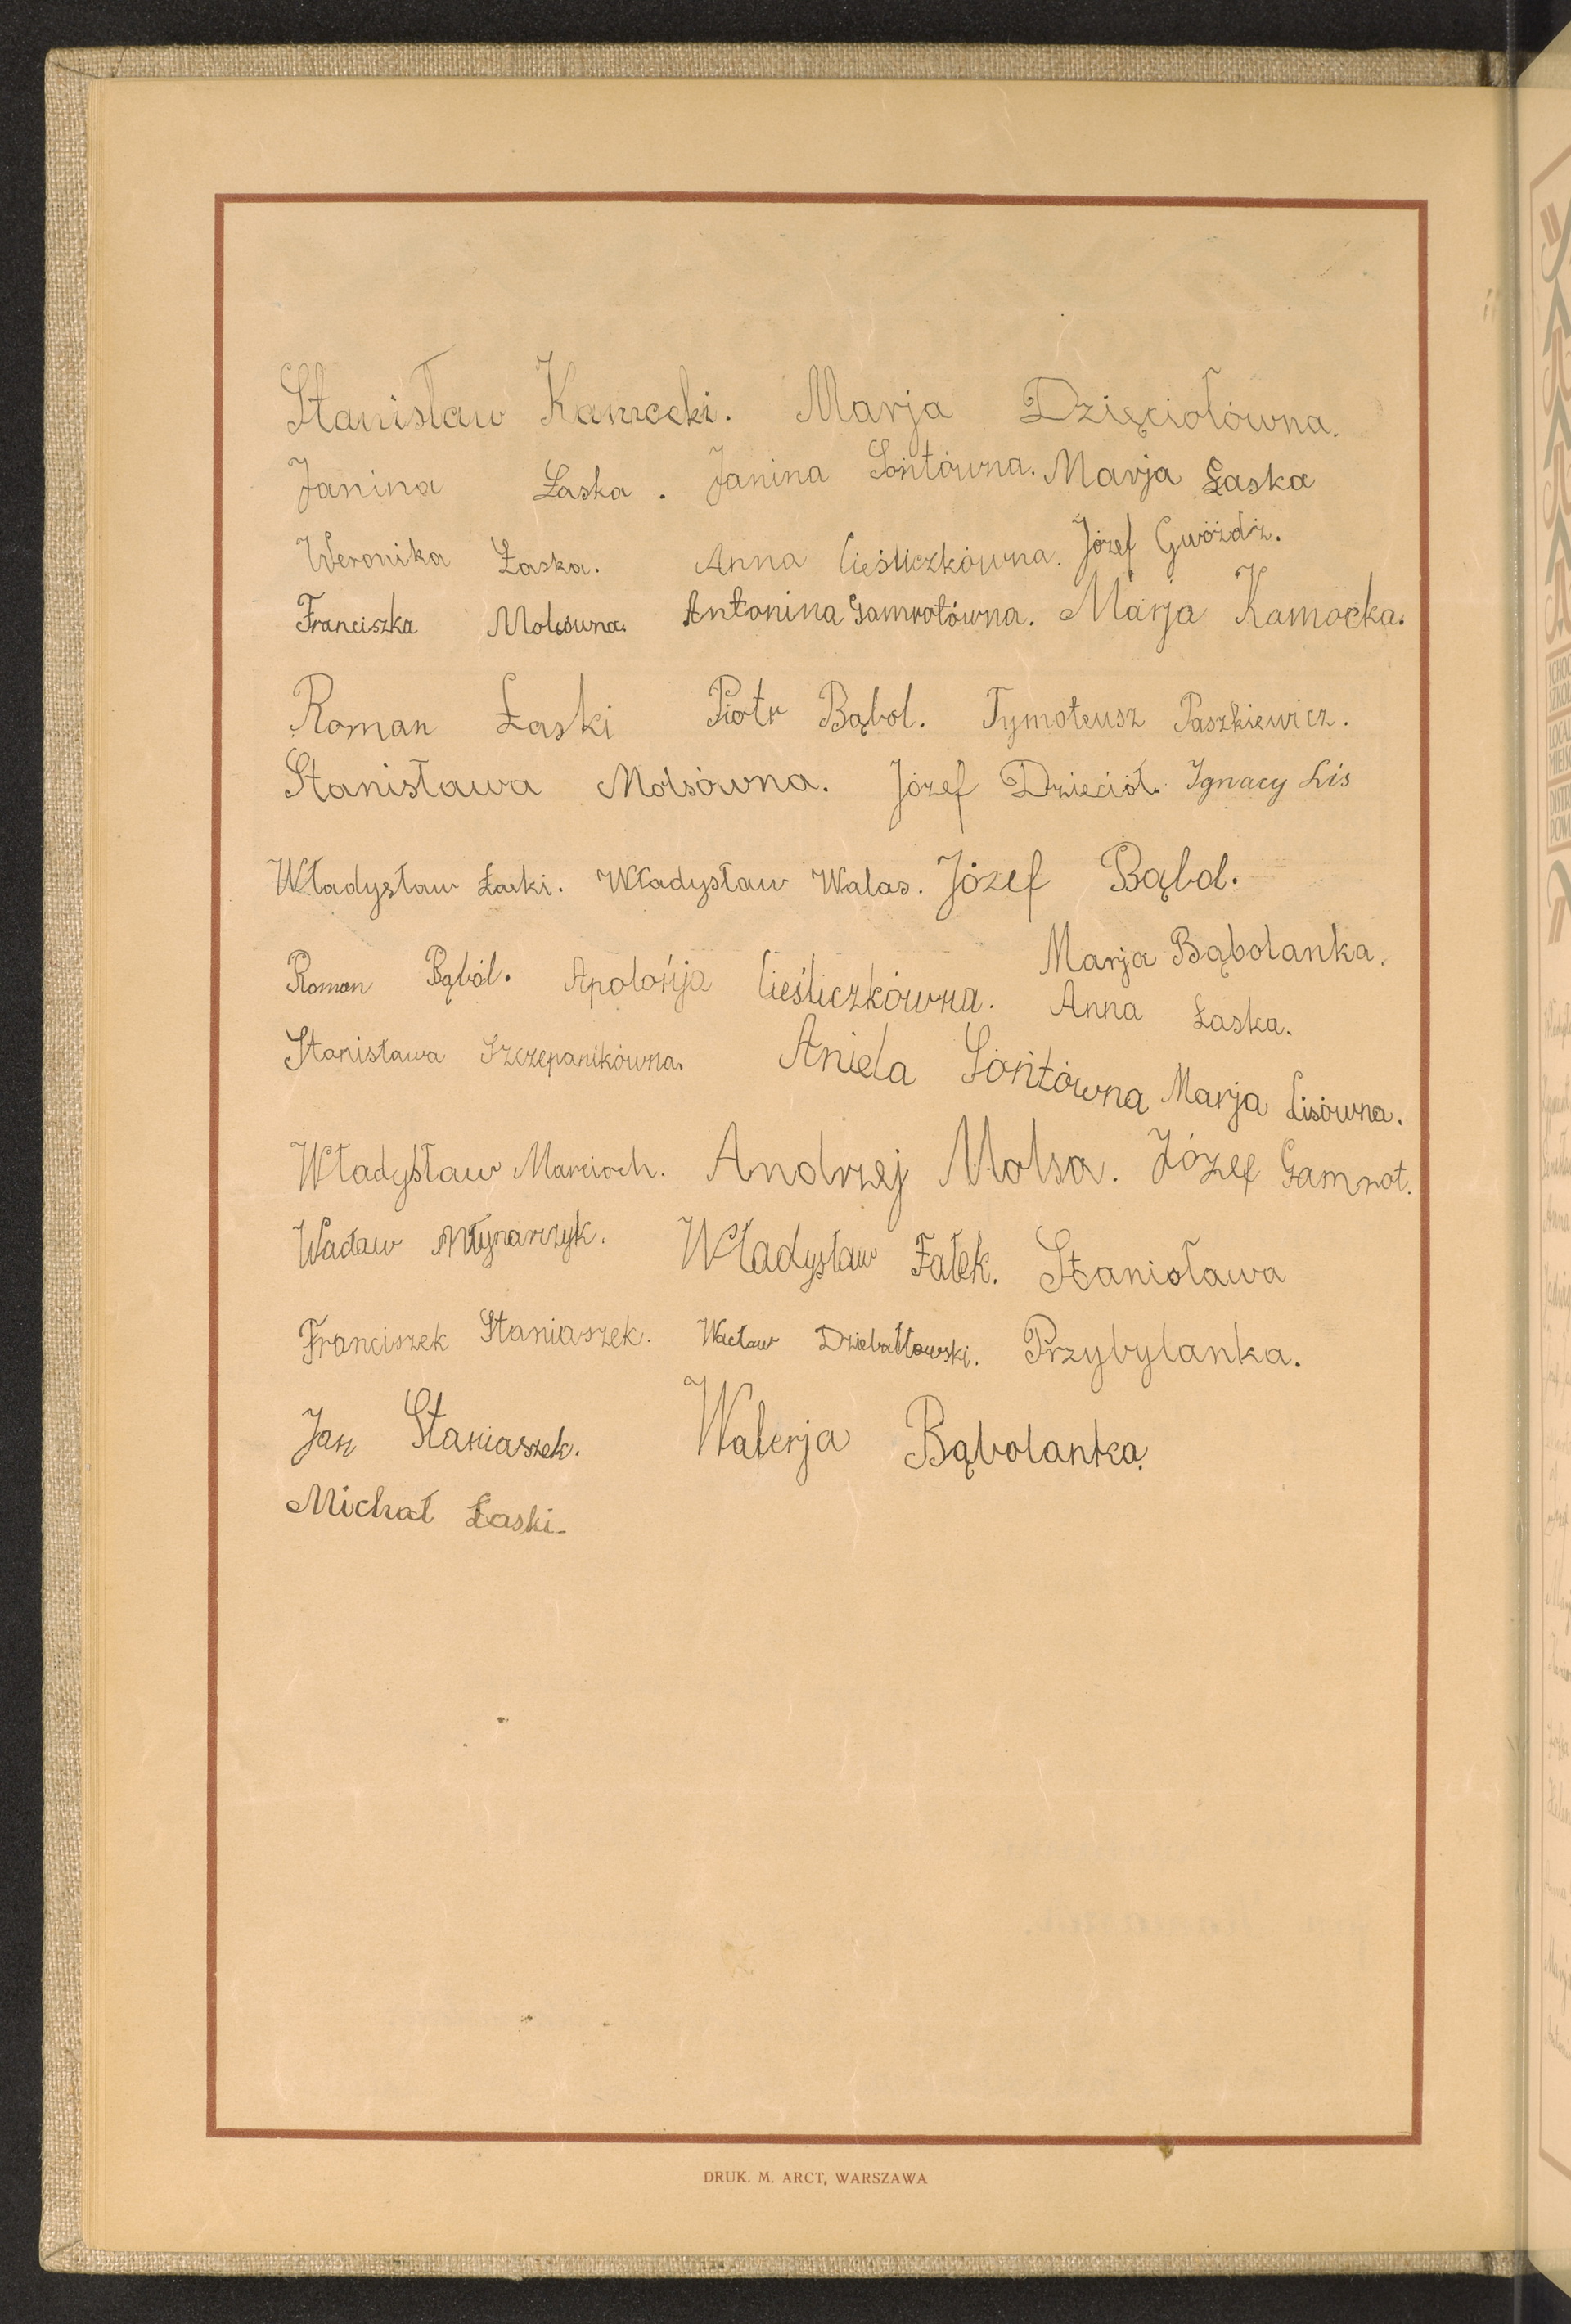 Stanisław Kamocki. Marja Dzięciołówna.
Janina Łaska. Janina Sońtówna. Marja Łaska
Weronika Łaska. Anna Cieśliczkówna. Józef Gwóździ.
Franciszka Molsówna. Antonina Gamrotówna. Marja Kamocka.
Roman Łaski Piotr Bąbol. Tymoteusz Paszkiewicz.
Stanisława Molsówna. Józef Dzięcioł. Ignacy Lis
Władysław Łaski. Władysław Walas. Józef Bąbol.
Marja Bąbolanka.
Roman Bąból. Apolońja Cieśliczkówna. Anna Łaska.
Stanisława Szczepanikówna. Aniela Sońtówna Marja Lisówna.
Władysław Marcioch. Andrzej Molsa. Józef Gamrot.
Wacław Młynarczyk. Władysław Fałek. Stanisława
Franciszek Staniaszek. Wacław Dziebałtowski. Przybylanka.
Jan Staniaszek. Walerja Bąbolanka.
Michał Łaski
DRUK. M. ARCT, WARSZAWA